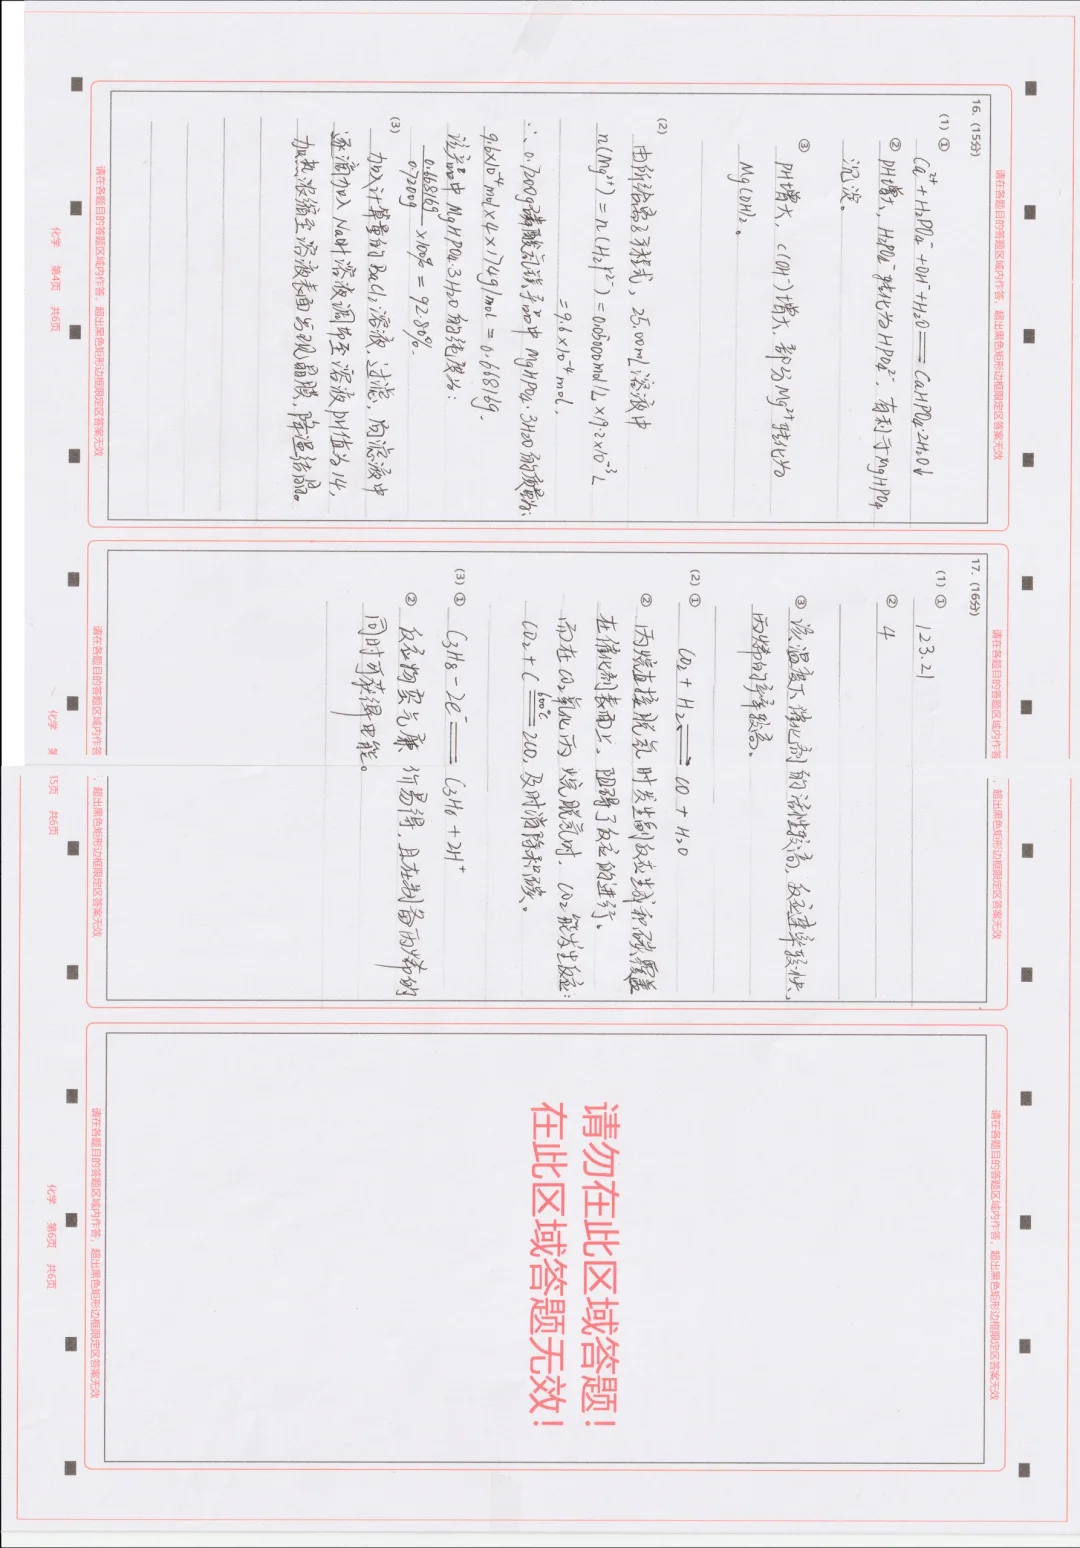 请在各题目的答题区域内作答，超出黑色矩形边框限定区答案无效
16. (15分)
(1) ① Ca²⁺ + H₂PO₄⁻ + OH⁻ + H₂O === CaHPO₄·2H₂O↓
② pH增大，H₂PO₄⁻转化为HPO₄²⁻，有利于MgHPO₄
沉淀。
③ pH增大，c(OH⁻)增大，部分Mg²⁺转化为
Mg(OH)₂。
(2) 由所给离子方程式，25.00mL溶液中
n(Mg²⁺) = n(H₂Y²⁻) = 0.05000mol/L × 19.2×10⁻³L
= 9.6×10⁻⁴mol，
∴ 0.7200g磷酸氢镁产品中 MgHPO₄·3H₂O的质量为：
9.6×10⁻⁴mol×4×174g/mol = 0.66816g.
该产品中 MgHPO₄·3H₂O的纯度为：
0.66816g/0.7200g ×100% = 92.80%.
(3) 加入计算量的BaCl₂溶液，过滤，向滤液中
逐滴加入NaOH溶液调节至溶液pH值为14，
加热浓缩至溶液表面出现晶膜，降温结晶。
请在各题目的答题区域内作答，超出黑色矩形边框限定区答案无效
化学 第4页 共6页
请在各题目的答题区域内作答，超出黑色矩形边框限定区答案无效
17. (16分)
(1) ① 123.21
② 4
③ 该温度下催化剂的活性较高，反应速率较快，
丙烯的产率较高。
(2) ① CO₂ + H₂ ⇌ CO + H₂O
② 丙烷直接脱氢时发生副反应生成积碳覆盖
在催化剂表面上，阻碍了反应的进行。
而在CO₂氧化丙烷脱氢时，CO₂能发生反应：
CO₂ + C =600℃= 2CO，及时消除积碳。
(3) ① C₃H₈ − 2e⁻ === C₃H₆ + 2H⁺
② 反应物买气廉价易得，且在制备丙烯的
同时可获得电能。
请在各题目的答题区域内作答，超出黑色矩形边框限定区答案无效
化学 第5页 共6页
请在各题目的答题区域内作答，超出黑色矩形边框限定区答案无效
请勿在此区域答题！
在此区域答题无效！
请在各题目的答题区域内作答，超出黑色矩形边框限定区答案无效
化学 第6页 共6页